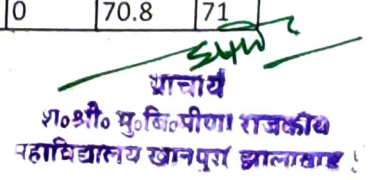 0 70.8 71
प्राचार्य
श०श्री० मु०वि०मीणा राजकीय
महाविद्यालय खानपुर झालावाड़